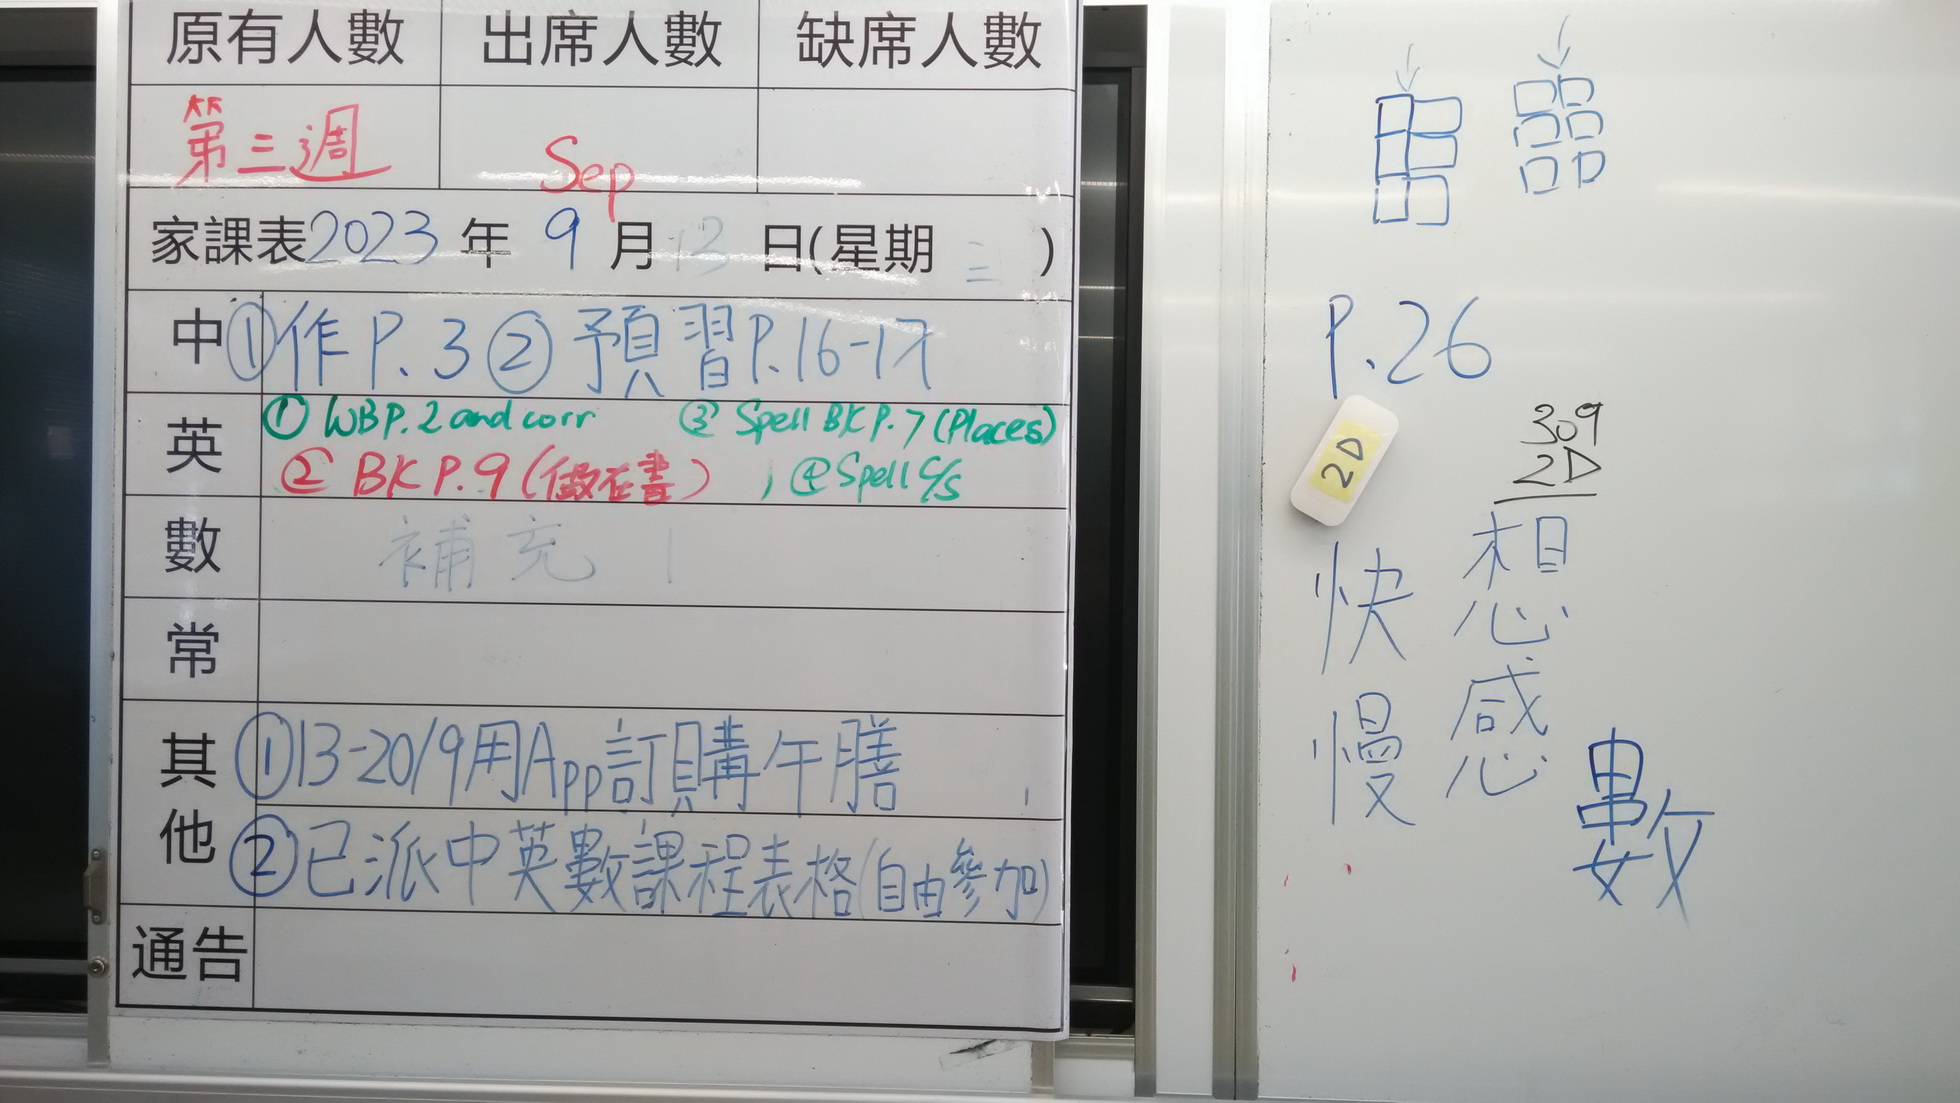 原有人數 出席人數 缺席人數
第三週 Sep
家課表2023年 9月13日(星期三)
中 ①作P.3 ②預習P.16-17
英 ①WBP.2 and corr ③Spell BK P.7 (Places)
②BK P.9(做在書) ④Spell C/S
數 補充 1
常
其他 ①13-20/9用App訂購午膳
②已派中英數課程表格(自由參加)
通告
P.26
2D
309
2D
想
快
感
慢
數